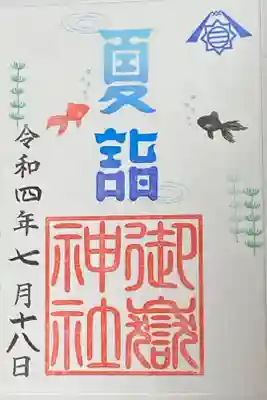 夏詣
御嶽神社
令和四年七月十八日